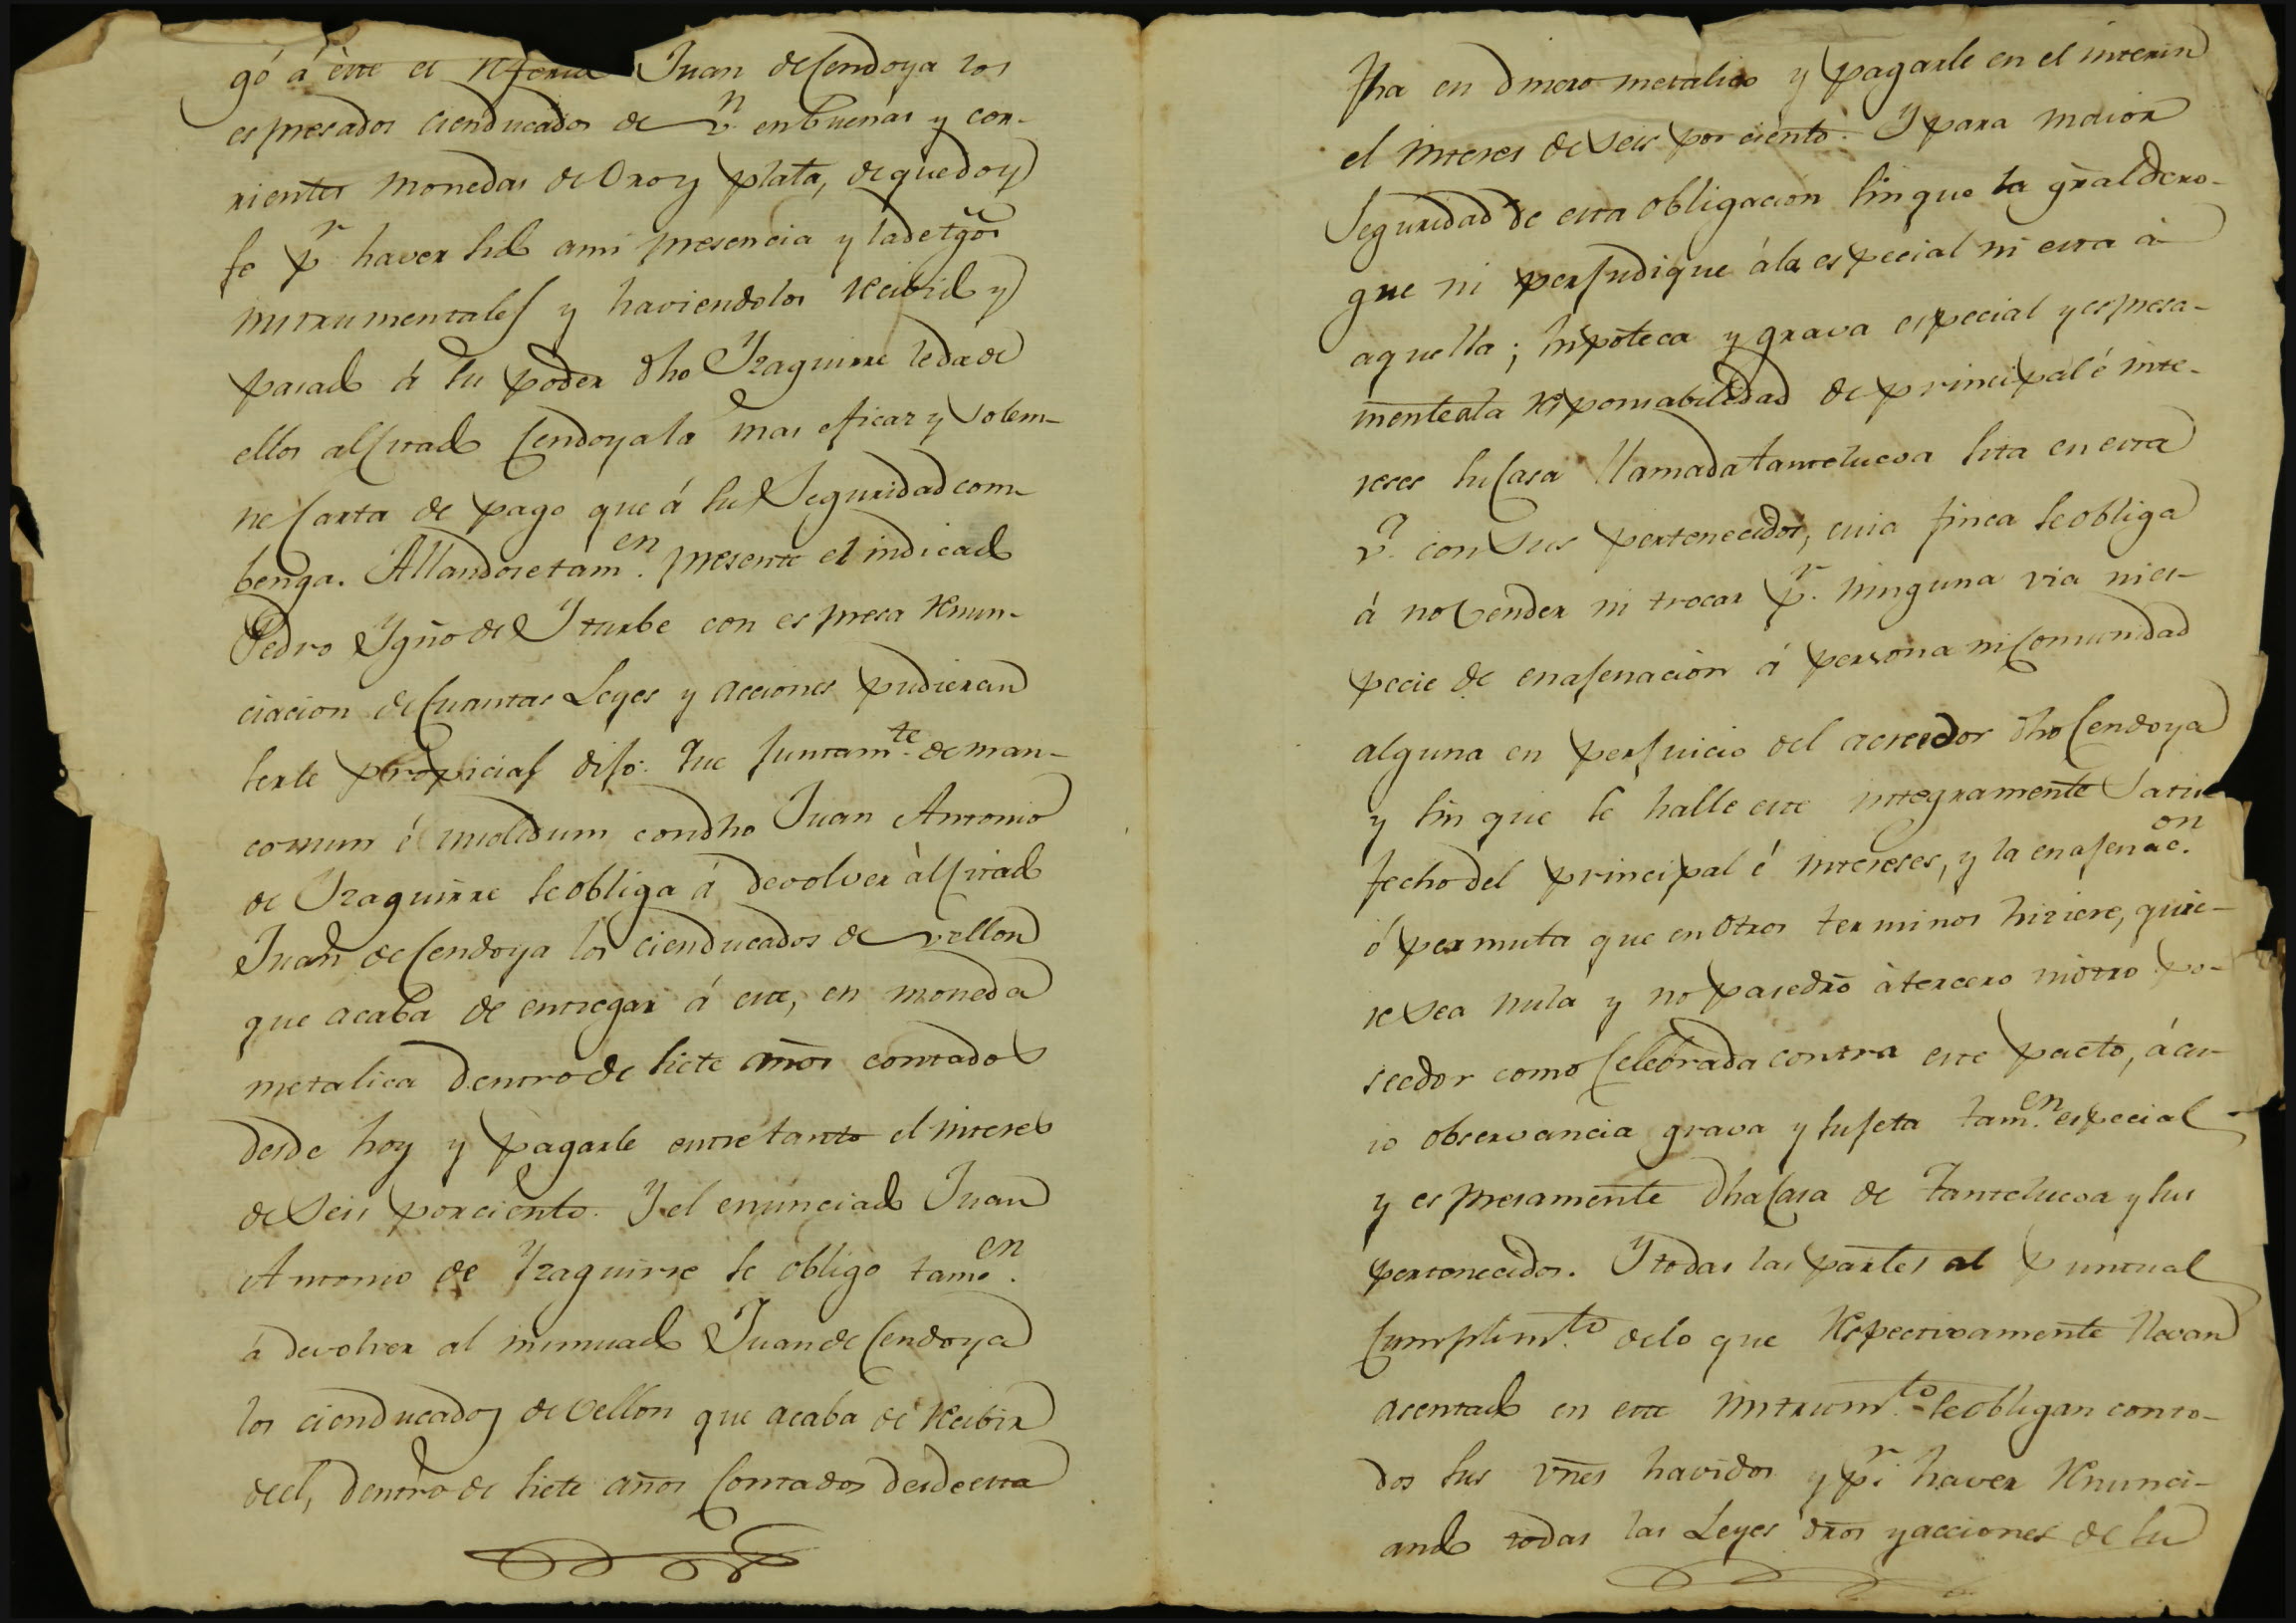 gó á este el referid Juan de Cendoya los
espresados cien ducados de v.n en buenas y cor-
rientes monedas de Oro y plata, de que doy
fe p.r haver sido a mi presencia y la de tg̃os
instrumentales y haviendolos recivido y
pasado á su poder dho Yzaguirre le da de
ellos al citado Cendoya la mas eficaz y solem-
ne Carta de pago que á su Seguridad com-
benga. Allandose tam.en presente el indicado
Pedro Ygño de Yturbe con espresa renun-
ciacion de Cuantas Leyes y acciones pudieran
serle propicias dijo: Que juntam.te de man-
comun é insolidum con dho Juan Antonio
de Yzaguirre se obliga á devolver àl citado
Juan de Cendoya los cien ducados de vellon
que acaba de entregar á este, en moneda
metalica dentro de siete años contados
desde hoy y pagarle entre tanto el interes
de Seis por ciento. Y el enunciado Juan
Antonio de Yzaguirre se obligó tamv.en
á devolver al insinuado Juan de Cendoya
los cien ducados de vellon que acaba de recibir
de el, dentro de siete años Contados desde esta
fha en dinero metalico y pagarle en el interin
el interes de Seis por ciento. Y para maior
Seguridad de esta obligacion sin que la gral dero-
gue ni perjudique á la especial ni esta à
aquella; hipoteca y grava especial y espresa-
mente ala responsabilidad de principal é inte-
reses su Casa llamada Santelucea sita en esta
v.a con Sus pertenecidos, cuia finca se obliga
á no vender ni trocar p.r ninguna via ni es-
pecie de enajenacion á persona ni Comunidad
alguna en perjuicio del acreedor dho Cendoya
y sin que se halle este integramente Satis-
fecho del principal é intereses, y la enajenac.on
ó permuta que en otros terminos hiziere, quie-
re Sea nula y no pase dr̃o à tercero ni otro po-
seedor como Celebrada contra este pacto, á cu-
io observancia grava y sujeta tam.en especial
y espresamente dha Casa de Santelucea y sus
pertenecidos. Y todas las partes al puntual
Cumplim.to de lo que respectivamente llevan
acentado en este instrum.to se obligan con to-
dos sus vñes havidos y p.r haver renunci-
ando todas las Leyes dr̃os y acciones de su